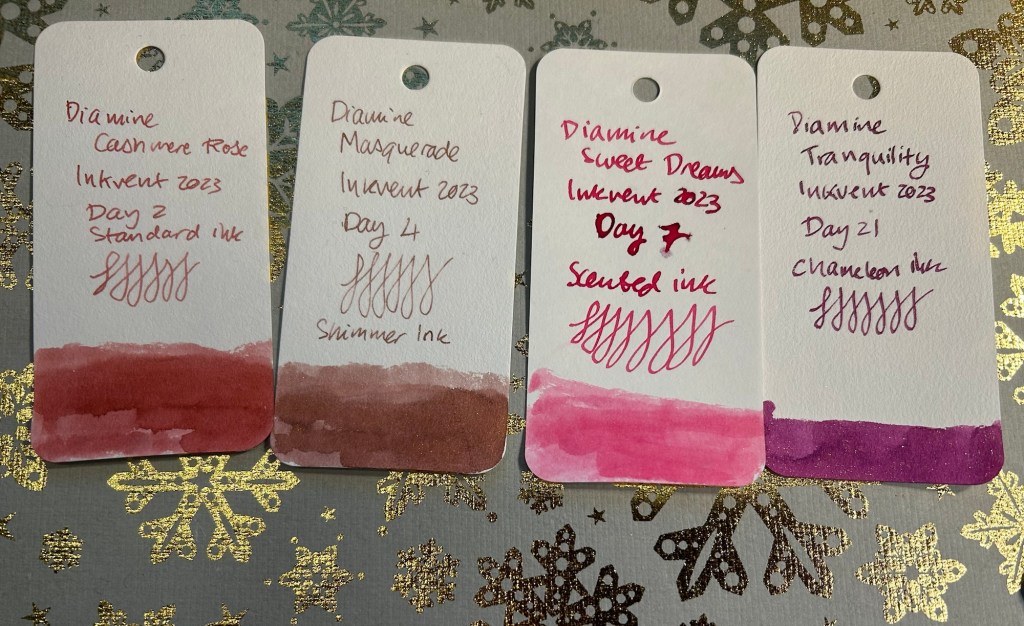 Diamine
Cashmere Rose
Inkvent 2023
Day 2
Standard ink
Diamine
Masquerade
Inkvent 2023
Day 4
Shimmer Ink
Diamine
Sweet Dreams
Inkvent 2023
Day 7
Scented ink
Diamine
Tranquility
Inkvent 2023
Day 21
Chameleon ink